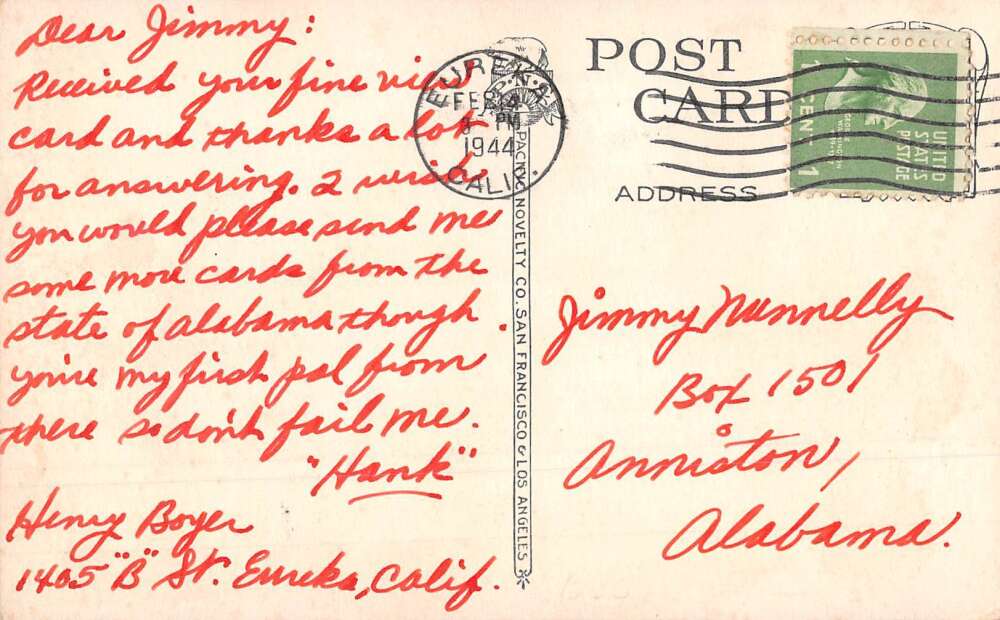 Dear Jimmy:
Received your fine view
card and thanks a lot
for answering. I wish
you would please send me
some more cards from the
state of Alabama though.
you're my first pal from
there so don't fail me.
"Hank"
Henry Boyer
1405 "B" St. Eureka, Calif.
EUREKA
FEB 4
PM
1944
CALIF.
PACIFIC NOVELTY CO. SAN FRANCISCO & LOS ANGELES
POST
CARD
ADDRESS
UNITED
STATES
POSTAGE
1 CENT 1
Jimmy Nunnelly
Box 1501
Anniston,
Alabama.